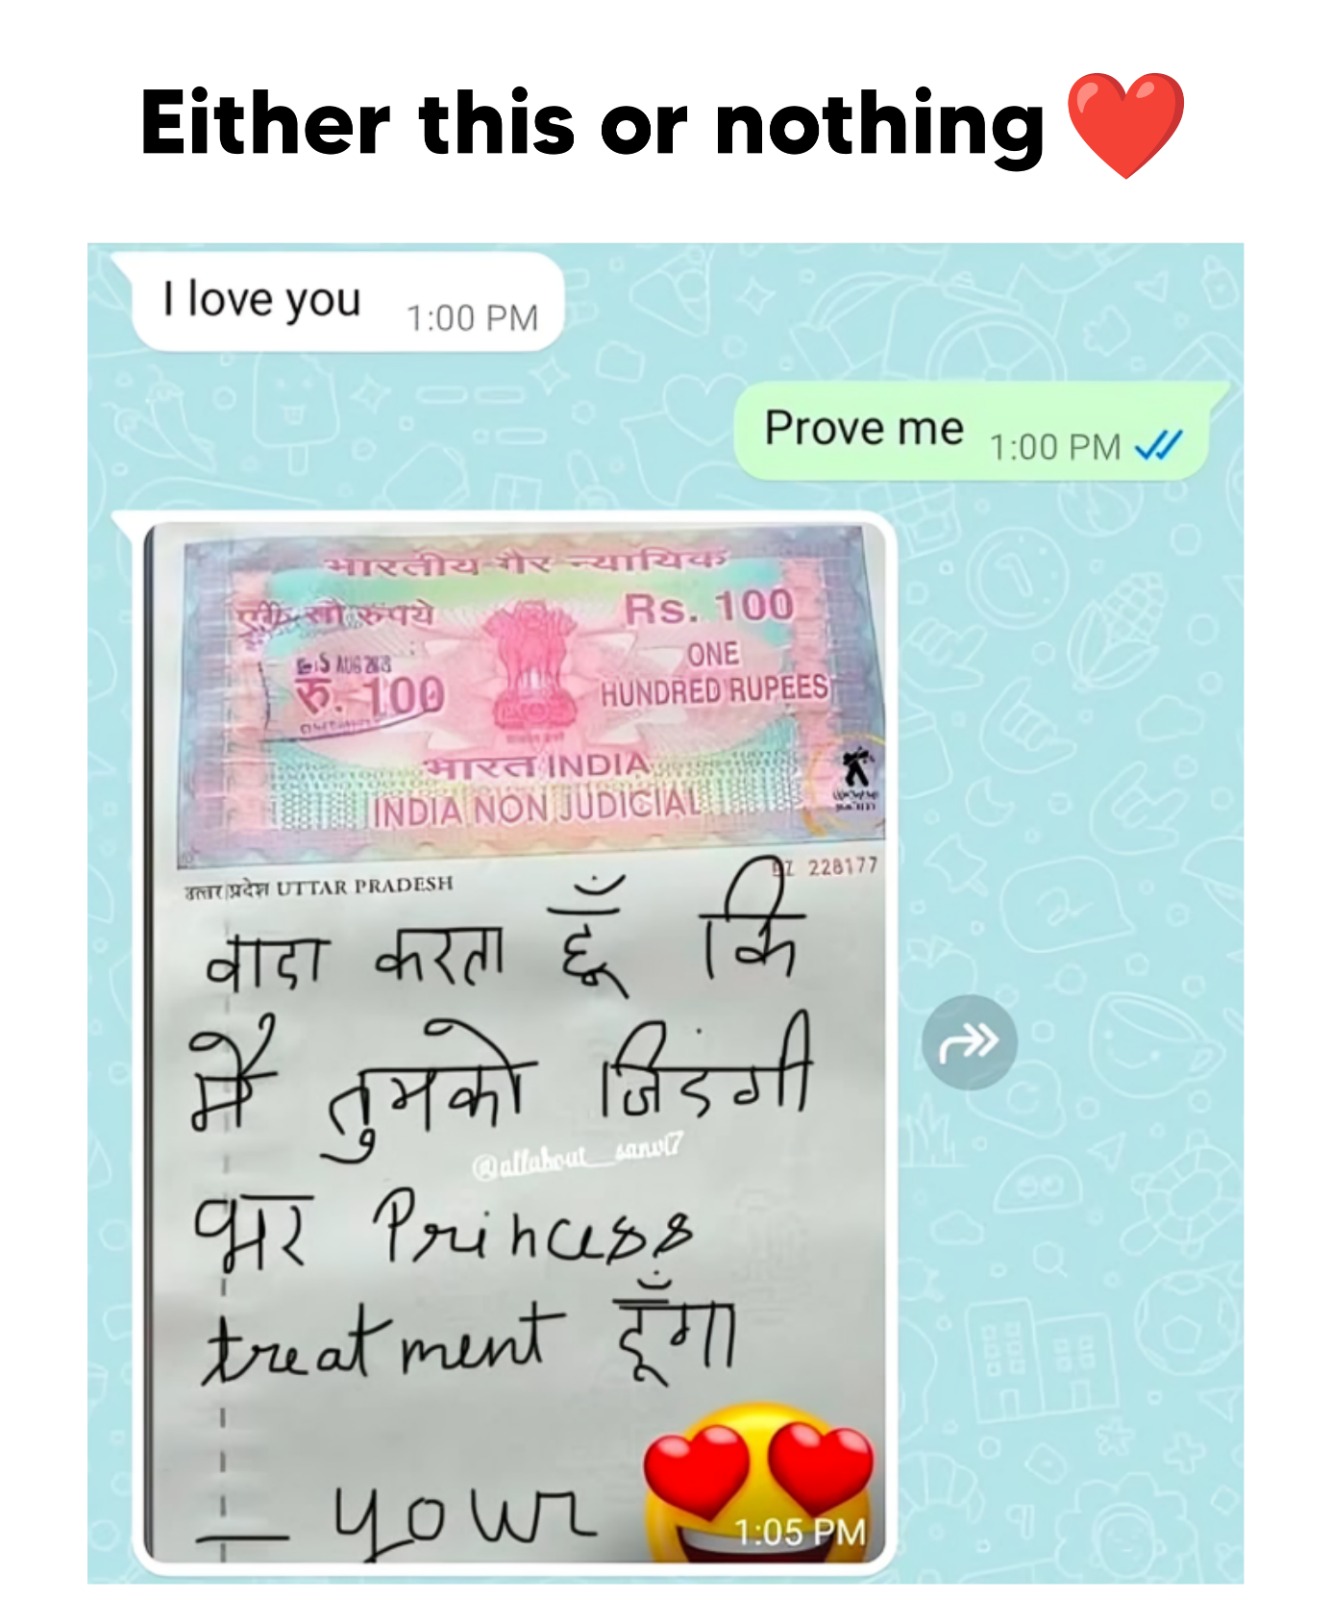 Either this or nothing ❤️
I love you 1:00 PM
Prove me 1:00 PM
भारतीय गैर न्यायिक
एक सौ रुपये
Rs. 100
ONE
AUG
रु. 100
HUNDRED RUPEES
भारत INDIA
INDIA NON JUDICIAL
228177
उत्तर प्रदेश UTTAR PRADESH
वादा करता हूँ कि
मैं तुमको जिंदगी
@allabout_sanvi7
भर Princess
treatment दूँगा
— your
1:05 PM